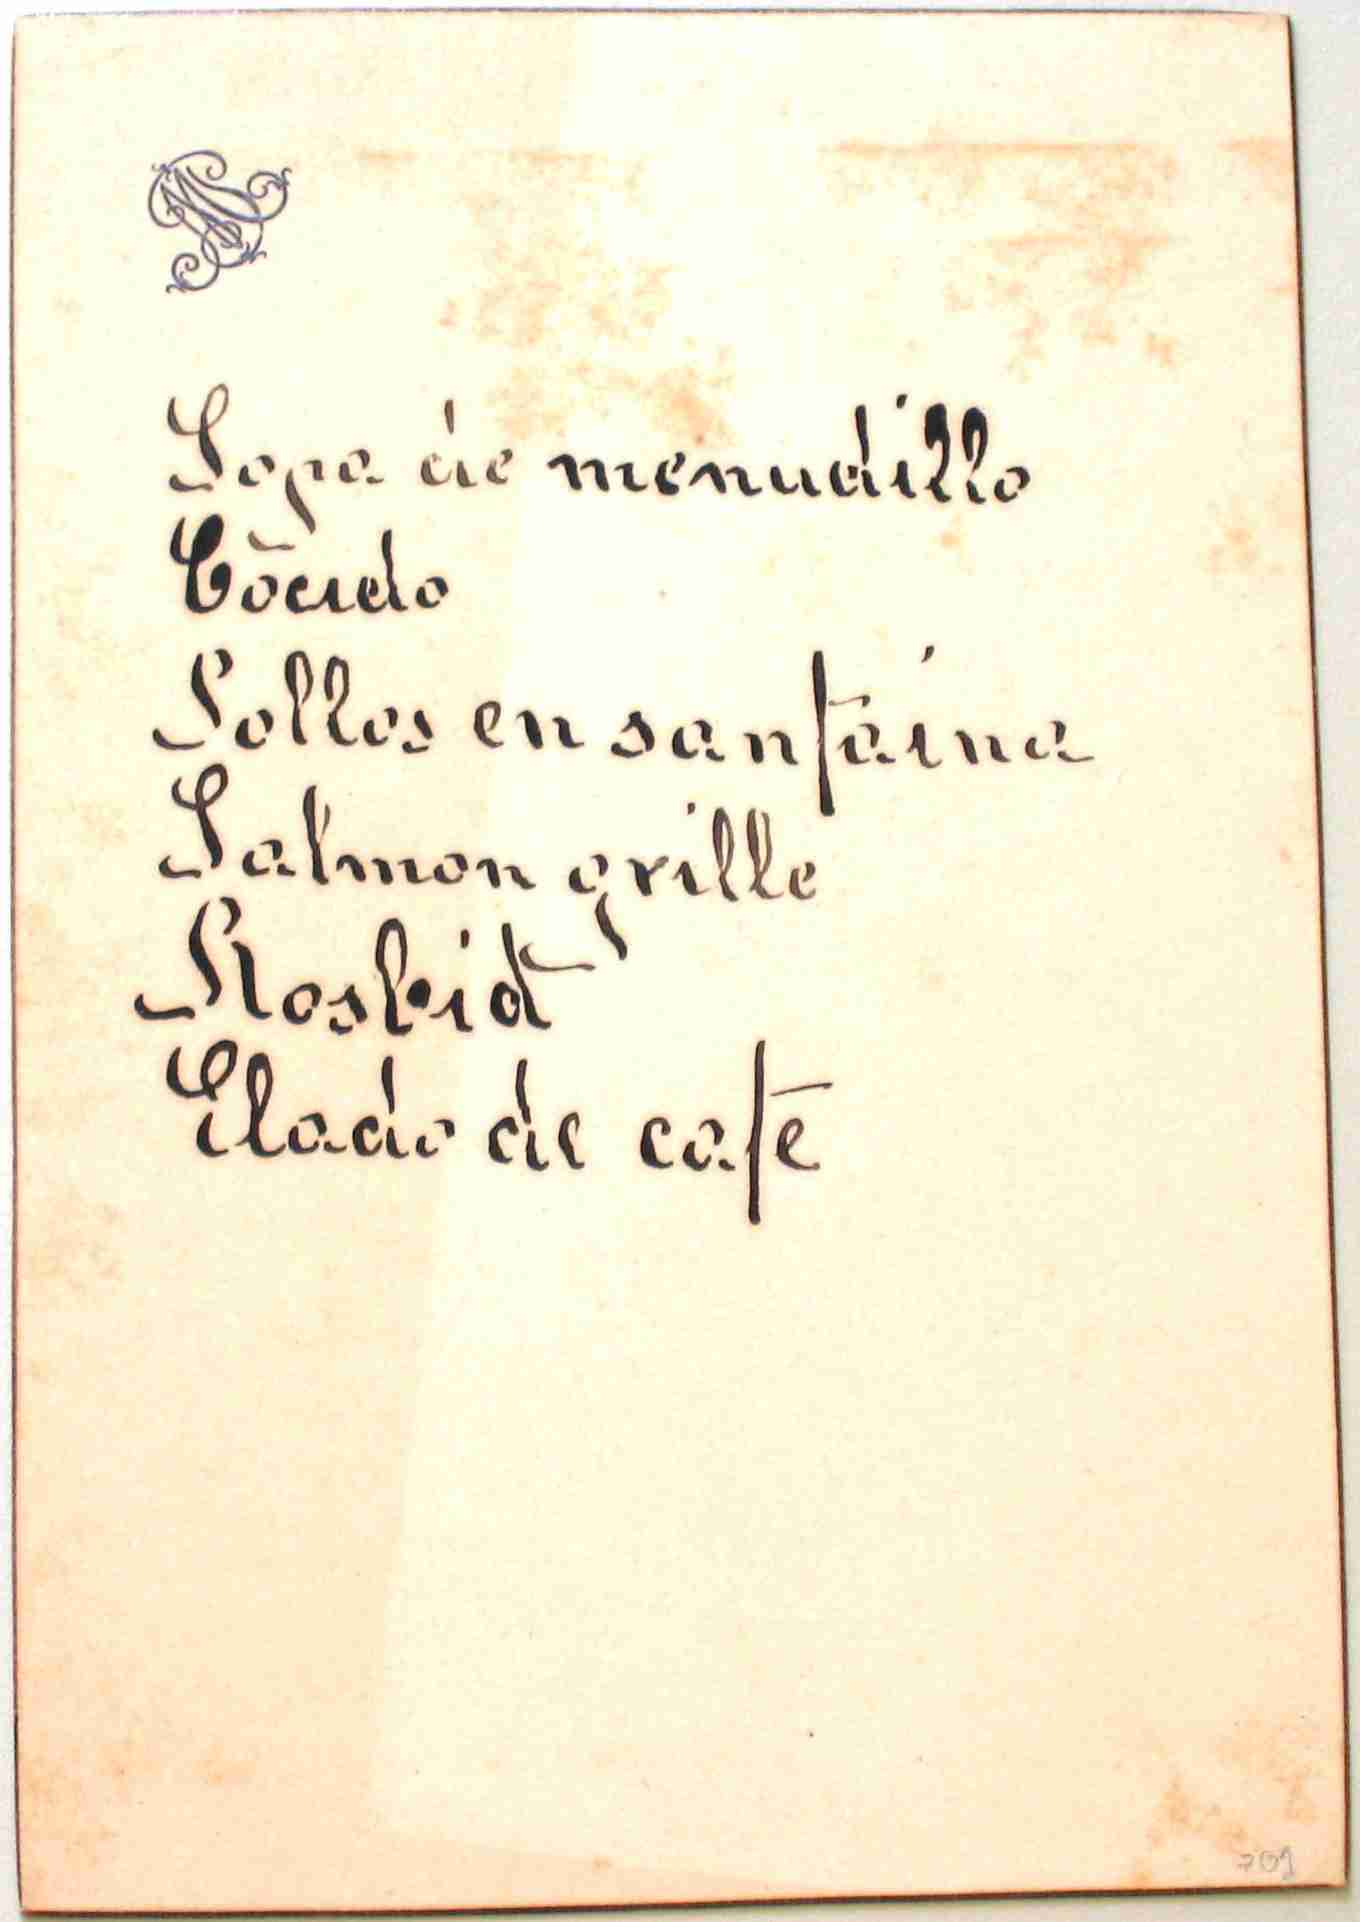 Sopa de menudillo
Cocido
Pollos en sanfaina
Salmon grille
Rosbid
Elado de café
701